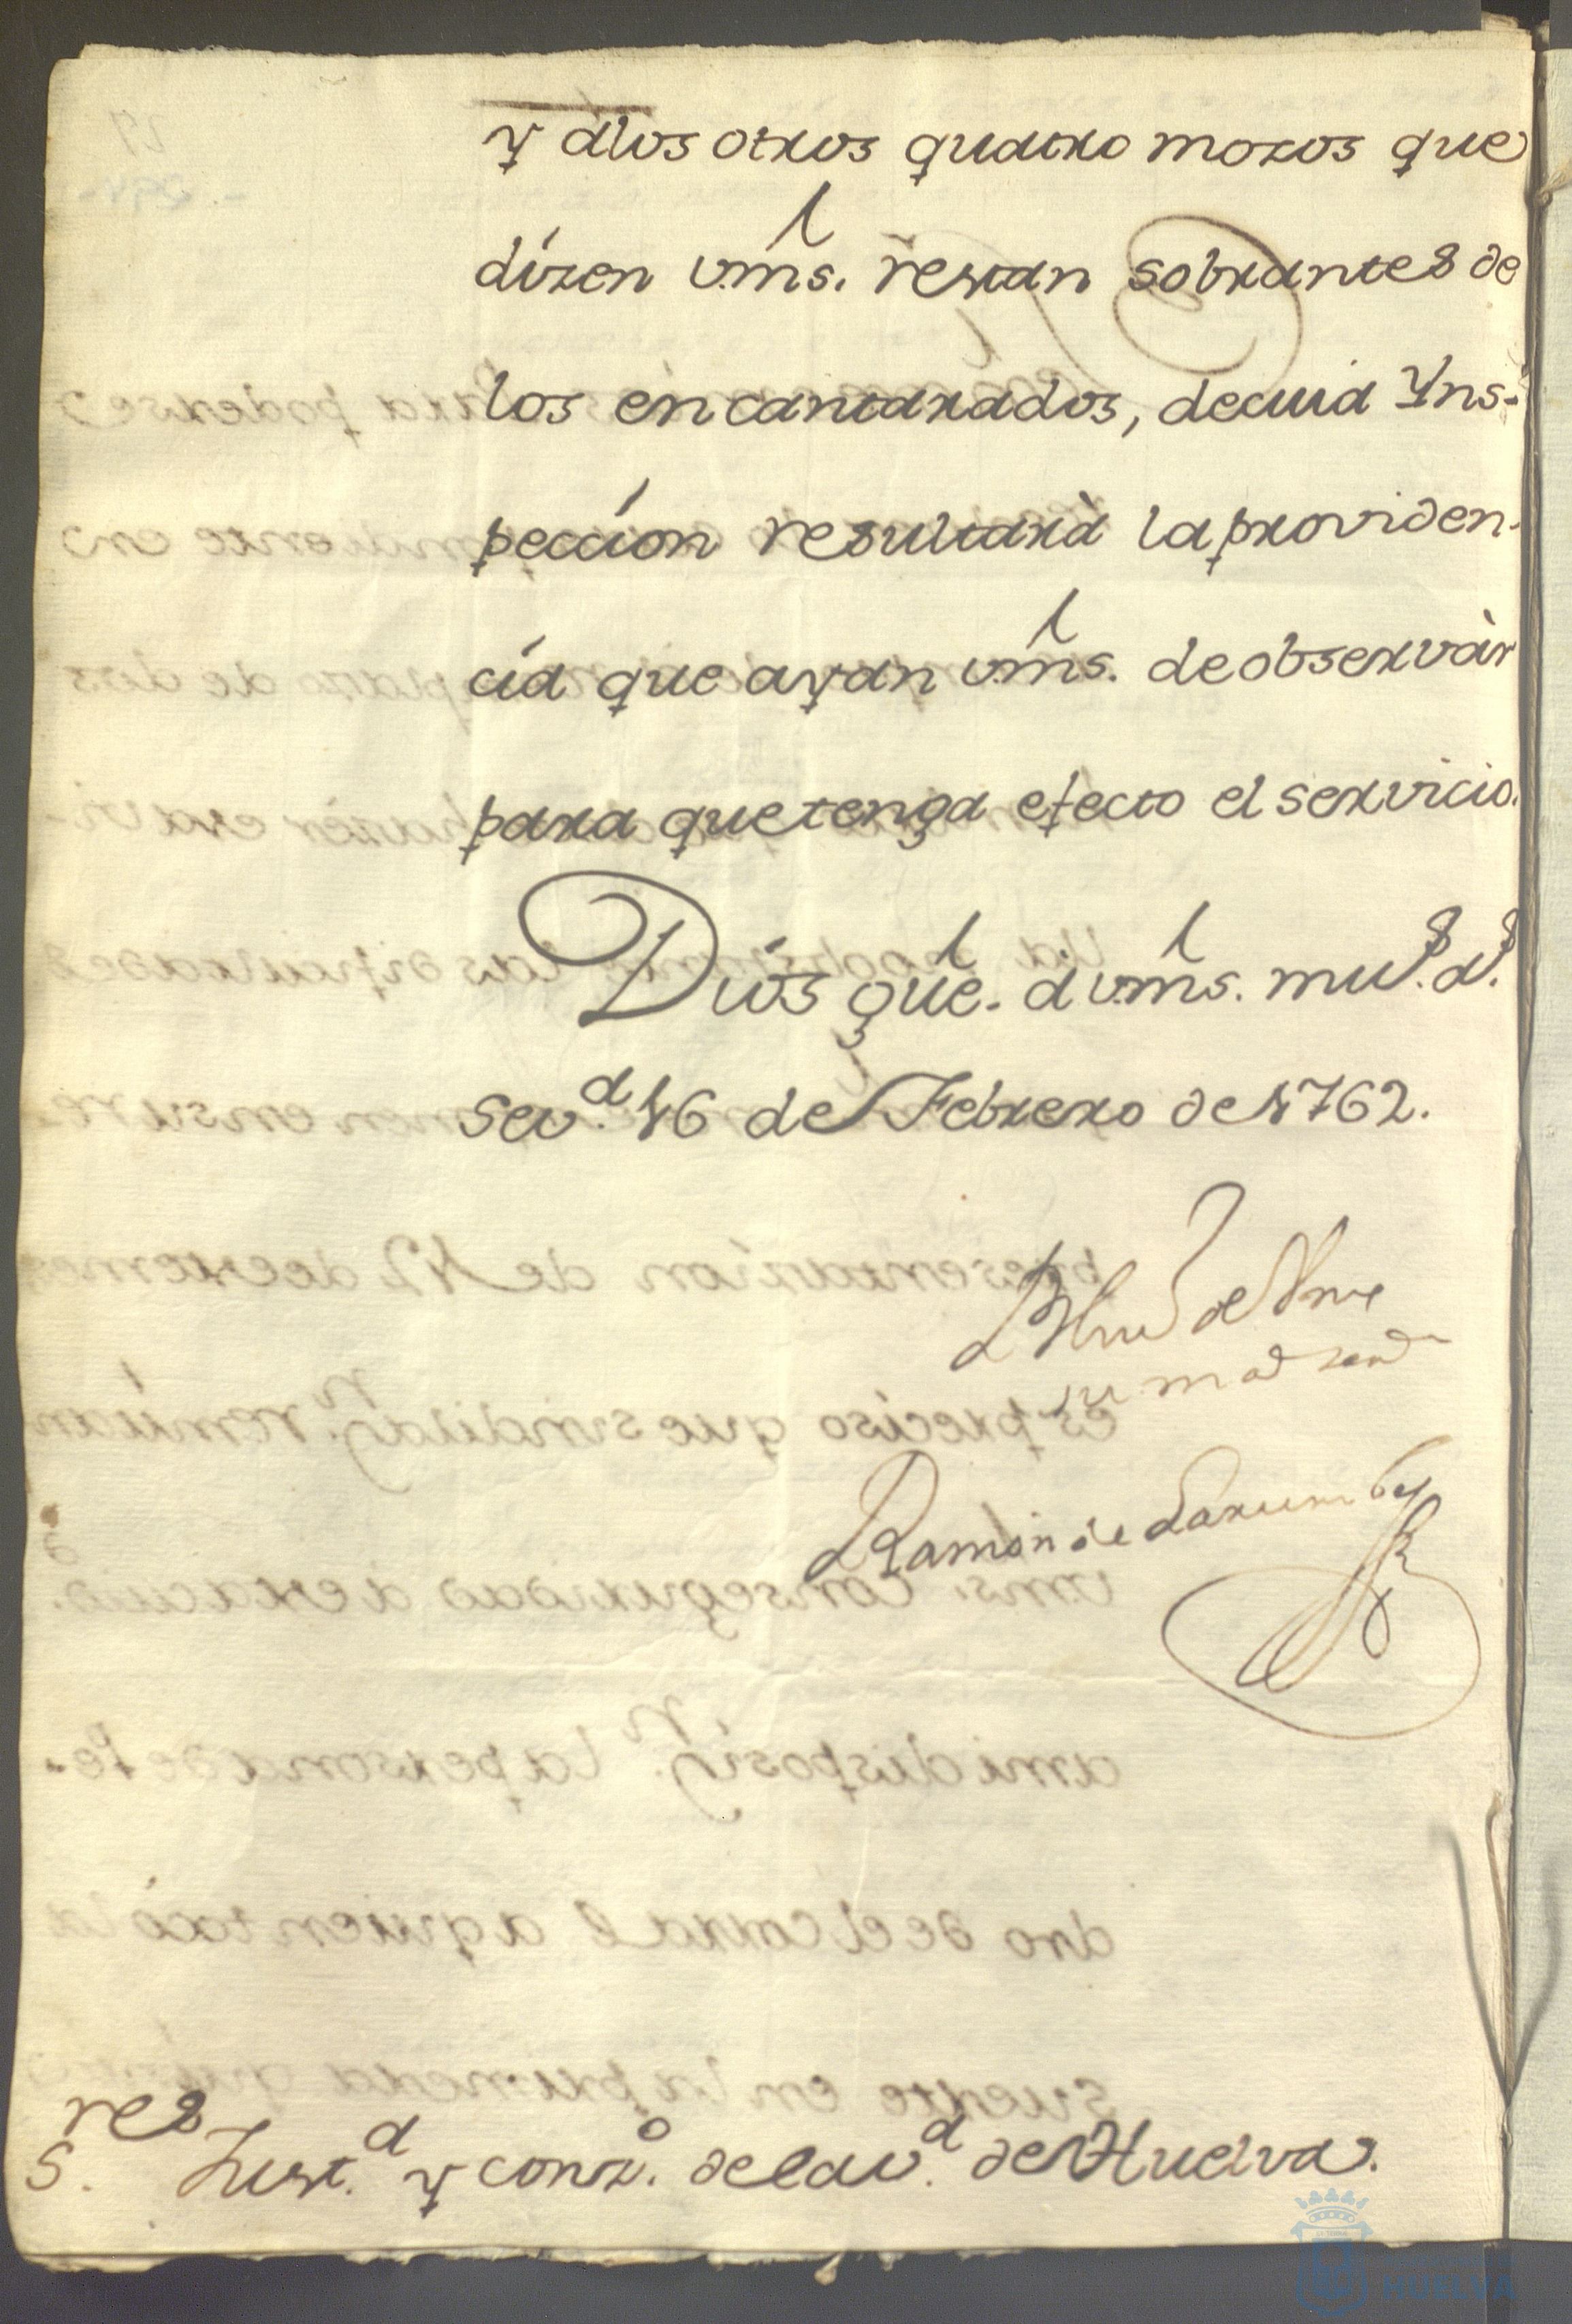 y a los otros quatro mozos que
dizen vms. restan sobrantes de
los encantarados, de cuia Yns-
peccion resultarà la providen-
cia que ayan vms. de observàr
para que tenga efecto el servicio.
Dios gue. a vms. mus. as.
Seva. 16 de Febrero de 1762.
Ramon de Larumbe
Sres Justa. y Conzo. de la va. de Huelva.
HUELVA